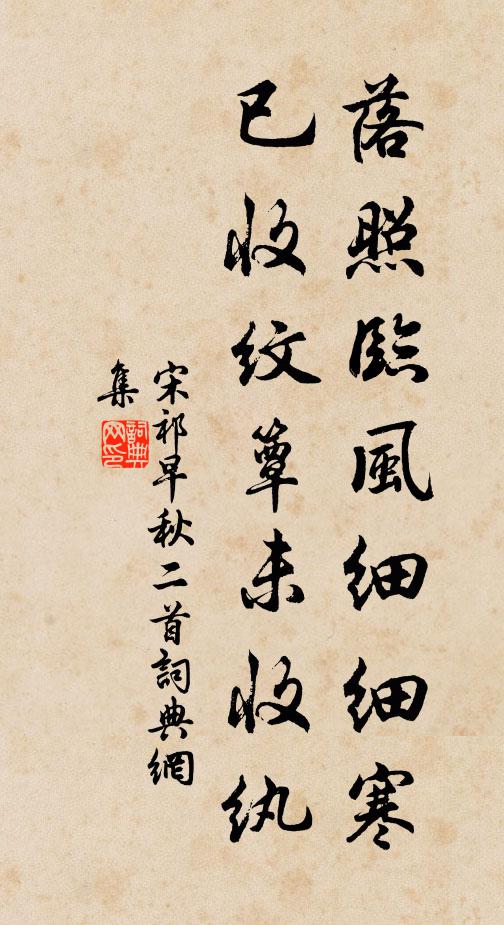 落照臨風細細寒
已收紋簟未收紈
宋祁早秋二首詞典網
集
詞典網印